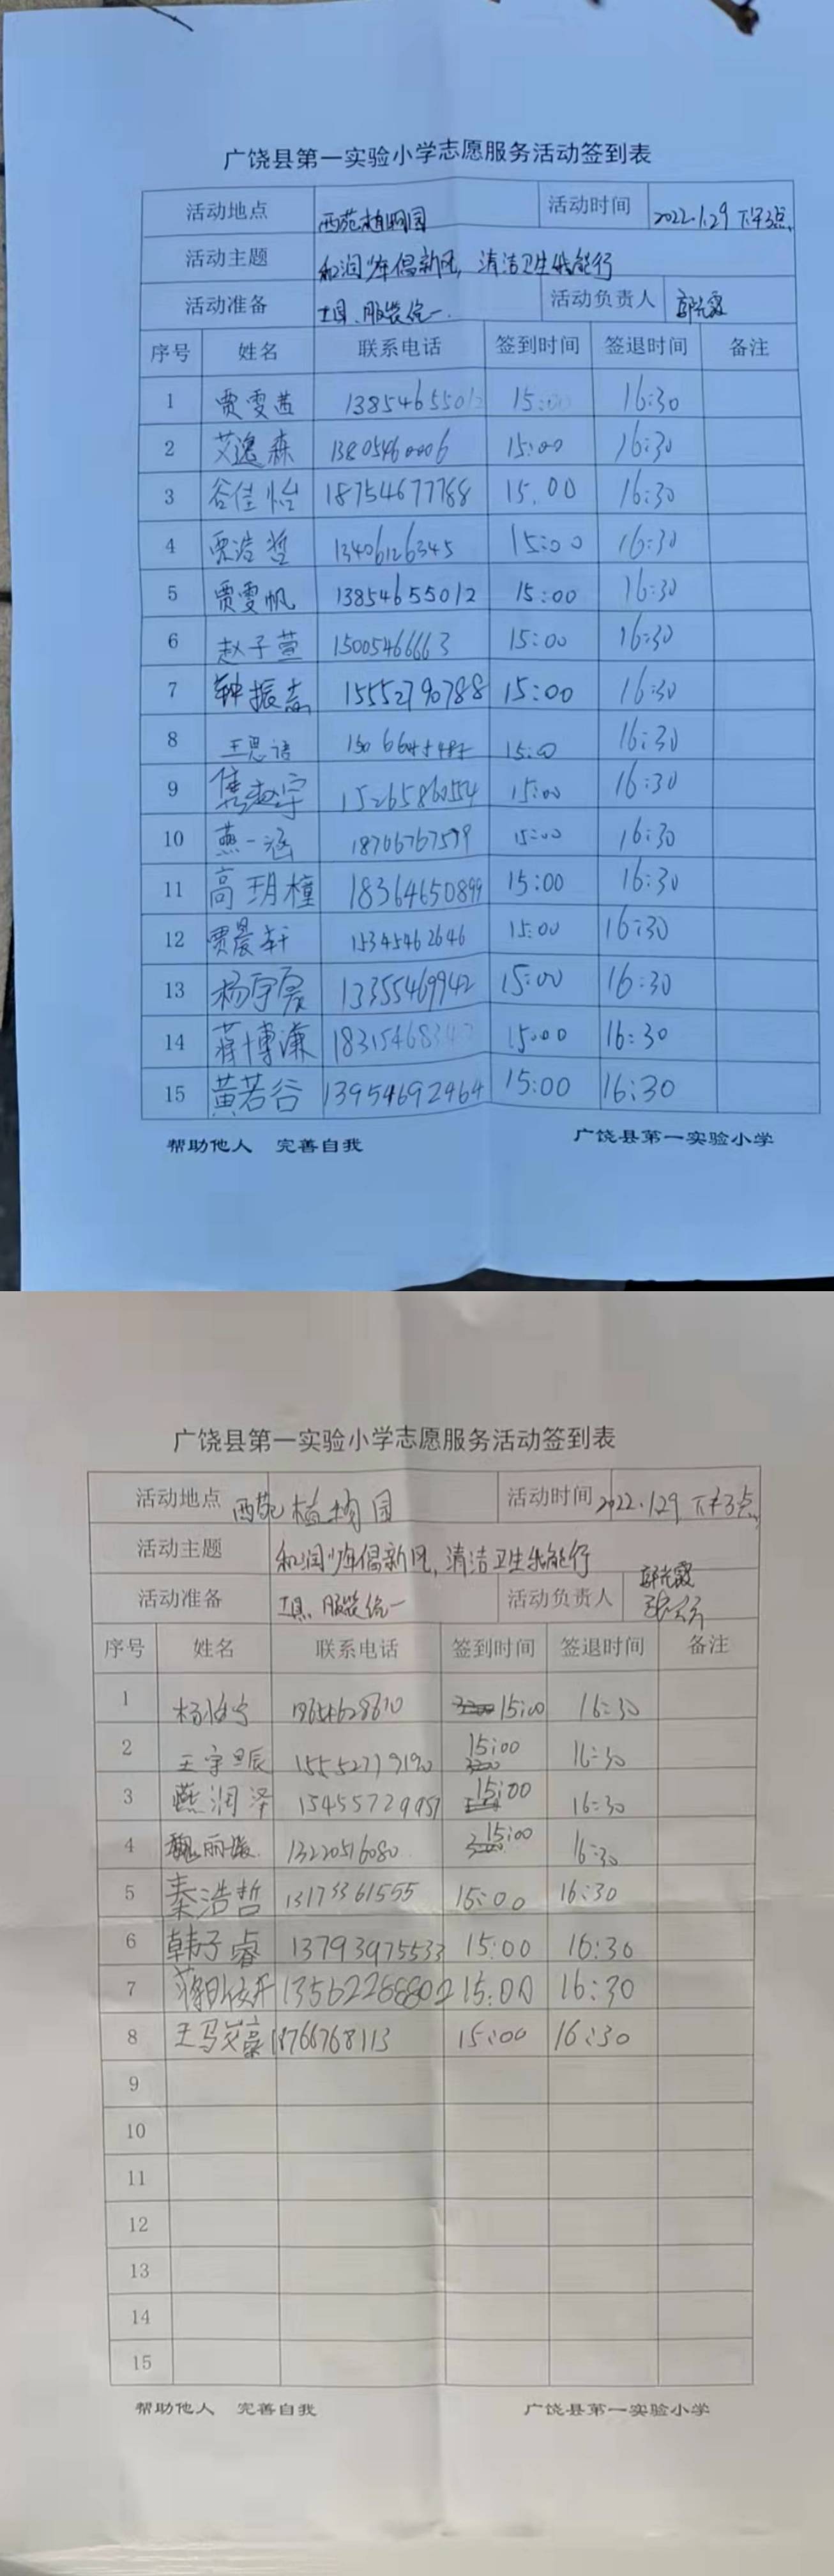 广饶县第一实验小学志愿服务活动签到表
活动地点 西苑植物园 活动时间 2022.1.29 下午3点
活动主题 和润少年倡新风，清洁卫生我能行
活动准备 工具、服装统一. 活动负责人 郭光霞
序号 姓名 联系电话 签到时间 签退时间 备注
1 贾雯茜 13854655012 15:00 16:30
2 艾逸森 13805460006 15:00 16:30
3 谷佳怡 18754677788 15.00 16:30
4 贾浩哲 13406126345 15:00 16:30
5 贾雯帆 13854655012 15:00 16:30
6 赵子萱 15005466663 15:00 16:30
7 钟振 15552790788 15:00 16:30
8 王思语 15:00 16:30
9 15265860554 15:00 16:30
10 燕一涵 18706767579 15:00 16:30
11 高玥橦 18364650899 15:00 16:30
12 贾晨轩 15345462646 15:00 16:30
13 杨宇 13355469942 15:00 16:30
14 蒋博谦 15:00 16:30
15 黄若谷 13954692464 15:00 16:30
帮助他人 完善自我 广饶县第一实验小学
广饶县第一实验小学志愿服务活动签到表
活动地点 西苑植物园 活动时间 2022.1.29 下午3点
活动主题 和润少年倡新风，清洁卫生我能行
活动准备 工具、服装统一 活动负责人 郭光霞
序号 姓名 联系电话 签到时间 签退时间 备注
1 15:00 16:30
2 王宇辰 15552779190 15:00 16:30
3 燕润泽 15455729957 15:00 16:30
4 魏丽媛 13220516080 15:00 16:30
5 秦浩哲 13173361555 15:00 16:30
6 韩子睿 13793975533 15:00 16:30
7 13562268802 15:00 16:30
8 18766768113 15:00 16:30
9
10
11
12
13
14
15
帮助他人 完善自我 广饶县第一实验小学